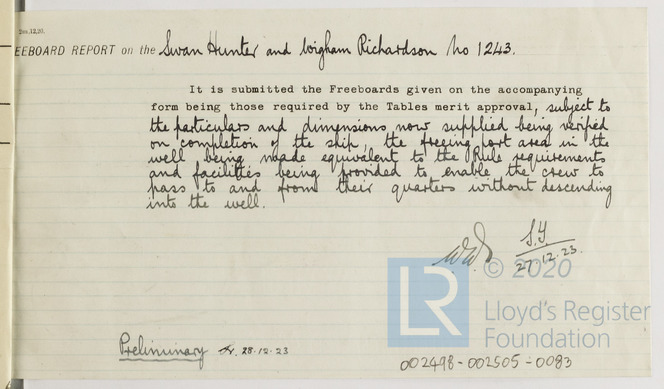 Dec.,12,20.
EEBOARD REPORT on the Swan Hunter and Wigham Richardson No 1243.
It is submitted the Freeboards given on the accompanying
form being those required by the Tables merit approval, subject to
the particulars and dimensions now supplied being verified
on completion of the ship, the freeing port area in the
well being made equivalent to the Rule requirements
and facilities being provided to enable the crew to
pass to and from their quarters without descending
into the well.
27.12.23.
© 2020
LR
Lloyd's Register
Foundation
Preliminary 28.12.23
002498-002505-0083